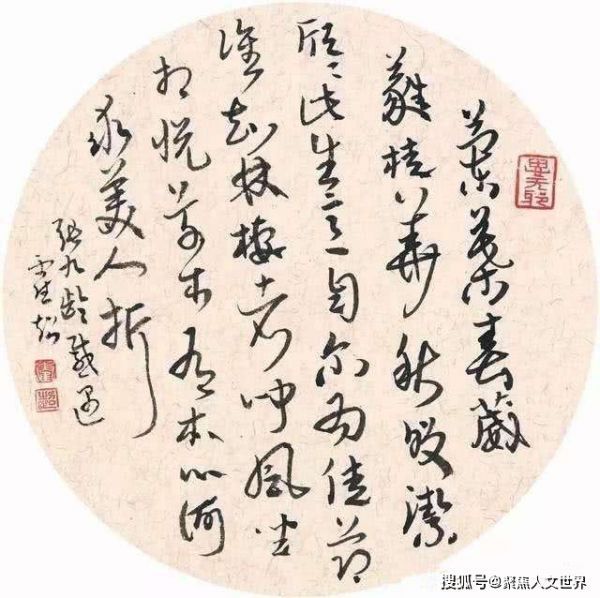 蘭葉春葳
蕤桂華秋皎潔
欣〻此生意自尔為佳節
誰知林棲者聞風坐
相悦草木有本心何
求美人折
張九齡感遇
思无邪
搜狐号@聚焦人文世界